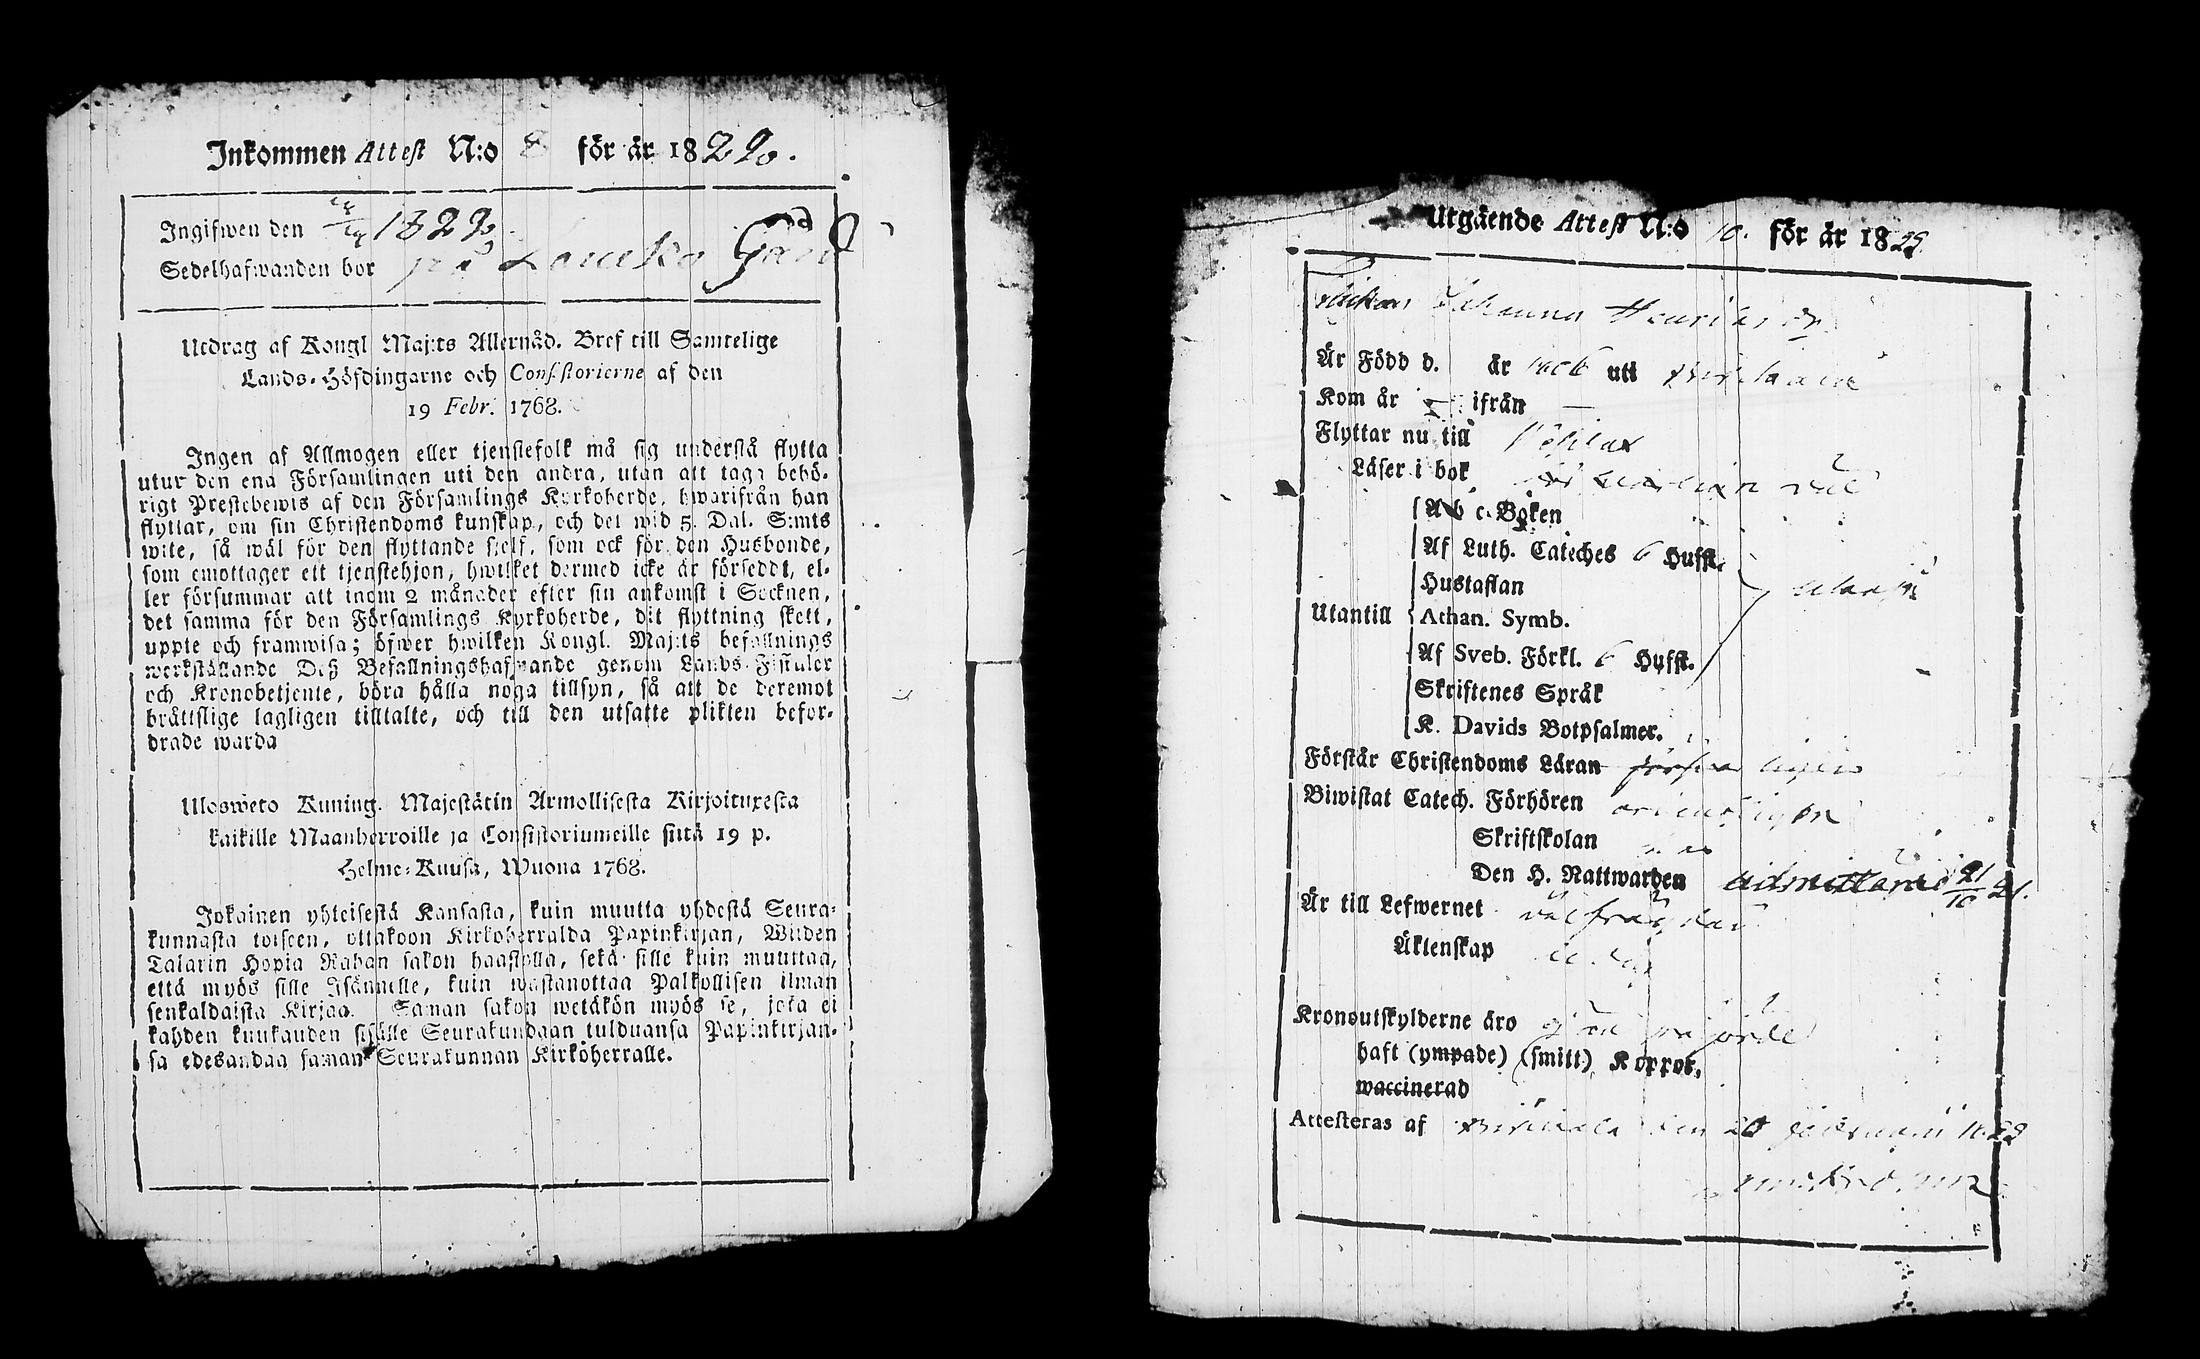 Inkommen Attest N:o 8 för år 1829.
Ingifwen den 1829
Sedelhafwanden bor på Gård
Utdrag af Kongl Maj:ts Allernåd. Bref till Samtelige
Lands-Höfdingarne och Consistorierne af den
19 Febr. 1768.
Ingen af Allmogen eller tjenstefolk må sig understå flytta
utur den ena Församlingen uti den andra, utan att taga behö-
rigt Prestebewis af den Församlings Kyrkoherde, hwarifrån han
flyttar, om sin Christendoms kunskap, och det wid 5. Dal. S:mts
wite, så wäl för den flyttande sjelf, som ock för den Husbonde,
som emottager ett tjenstehjon, hwilket dermed icke är försedt, el-
ler försummar att inom 2 månader efter sin ankomst i Socknen,
det samma för den Församlings Kyrkoherde, dit flyttning skett,
uppte och framwisa; öfwer hwilken Kongl. Maj:ts befallnings
werkställande Deß Befallningshafwande genom Lands-Fiskaler
och Kronobetjente, böra hålla noga tillsyn, så att de deremot
bråttslige lagligen tilltalte, och till den utsatte plikten befor-
drade warda
Ulosweto Kuning. Majestätin Armollisesta Kirjoituxesta
kaikille Maanherroille ja Consistoriumeille siitä 19 p.
Helme-Kuusa, Wuona 1768.
Jokainen yhteisestä Kansasta, kuin muutta yhdestä Seura-
kunnasta toiseen, ottakoon Kirkoherralda Papinkirjan, Wiiden
Talarin Hopia Rahan sakon haastolla, sekä sille kuin muuttaa,
että myös sille Isännelle, kuin wastanottaa Palkollisen ilman
senkaldaista Kirjaa. Saman sakon wetäkön myös se, joka ei
kahden kuukauden sisälle Seurakundaan tulduansa Papinkirjan-
sa edesandaa saman Seurakunnan Kirköherralle.
Utgående Attest N:o 10. för år 1829
Flickan Johanna Henriksdr
Är Född d. år 1806 uti
Kom år — ifrån —
Flyttar nu till
Läser i bok
A b c-Boken
Af Luth. Cateches 6 Hufst.
Hustaflan
Utantill Athan. Symb.
Af Sveb. Förkl. 6 Hufst.
Skriftenes Språk
K. Davids Botpsalmer.
Förstår Christendoms Läran
Biwistat Catech. Förhören ordentligen
Skriftskolan
Den H. Nattwarden admitterad 21/10 21.
Är till Lefwernet välfrägdad
Äktenskap ledig
Kronoutskylderne äro
haft (ympade) (smitt) Koppor,
waccinerad
Attesteras af den 20 1829